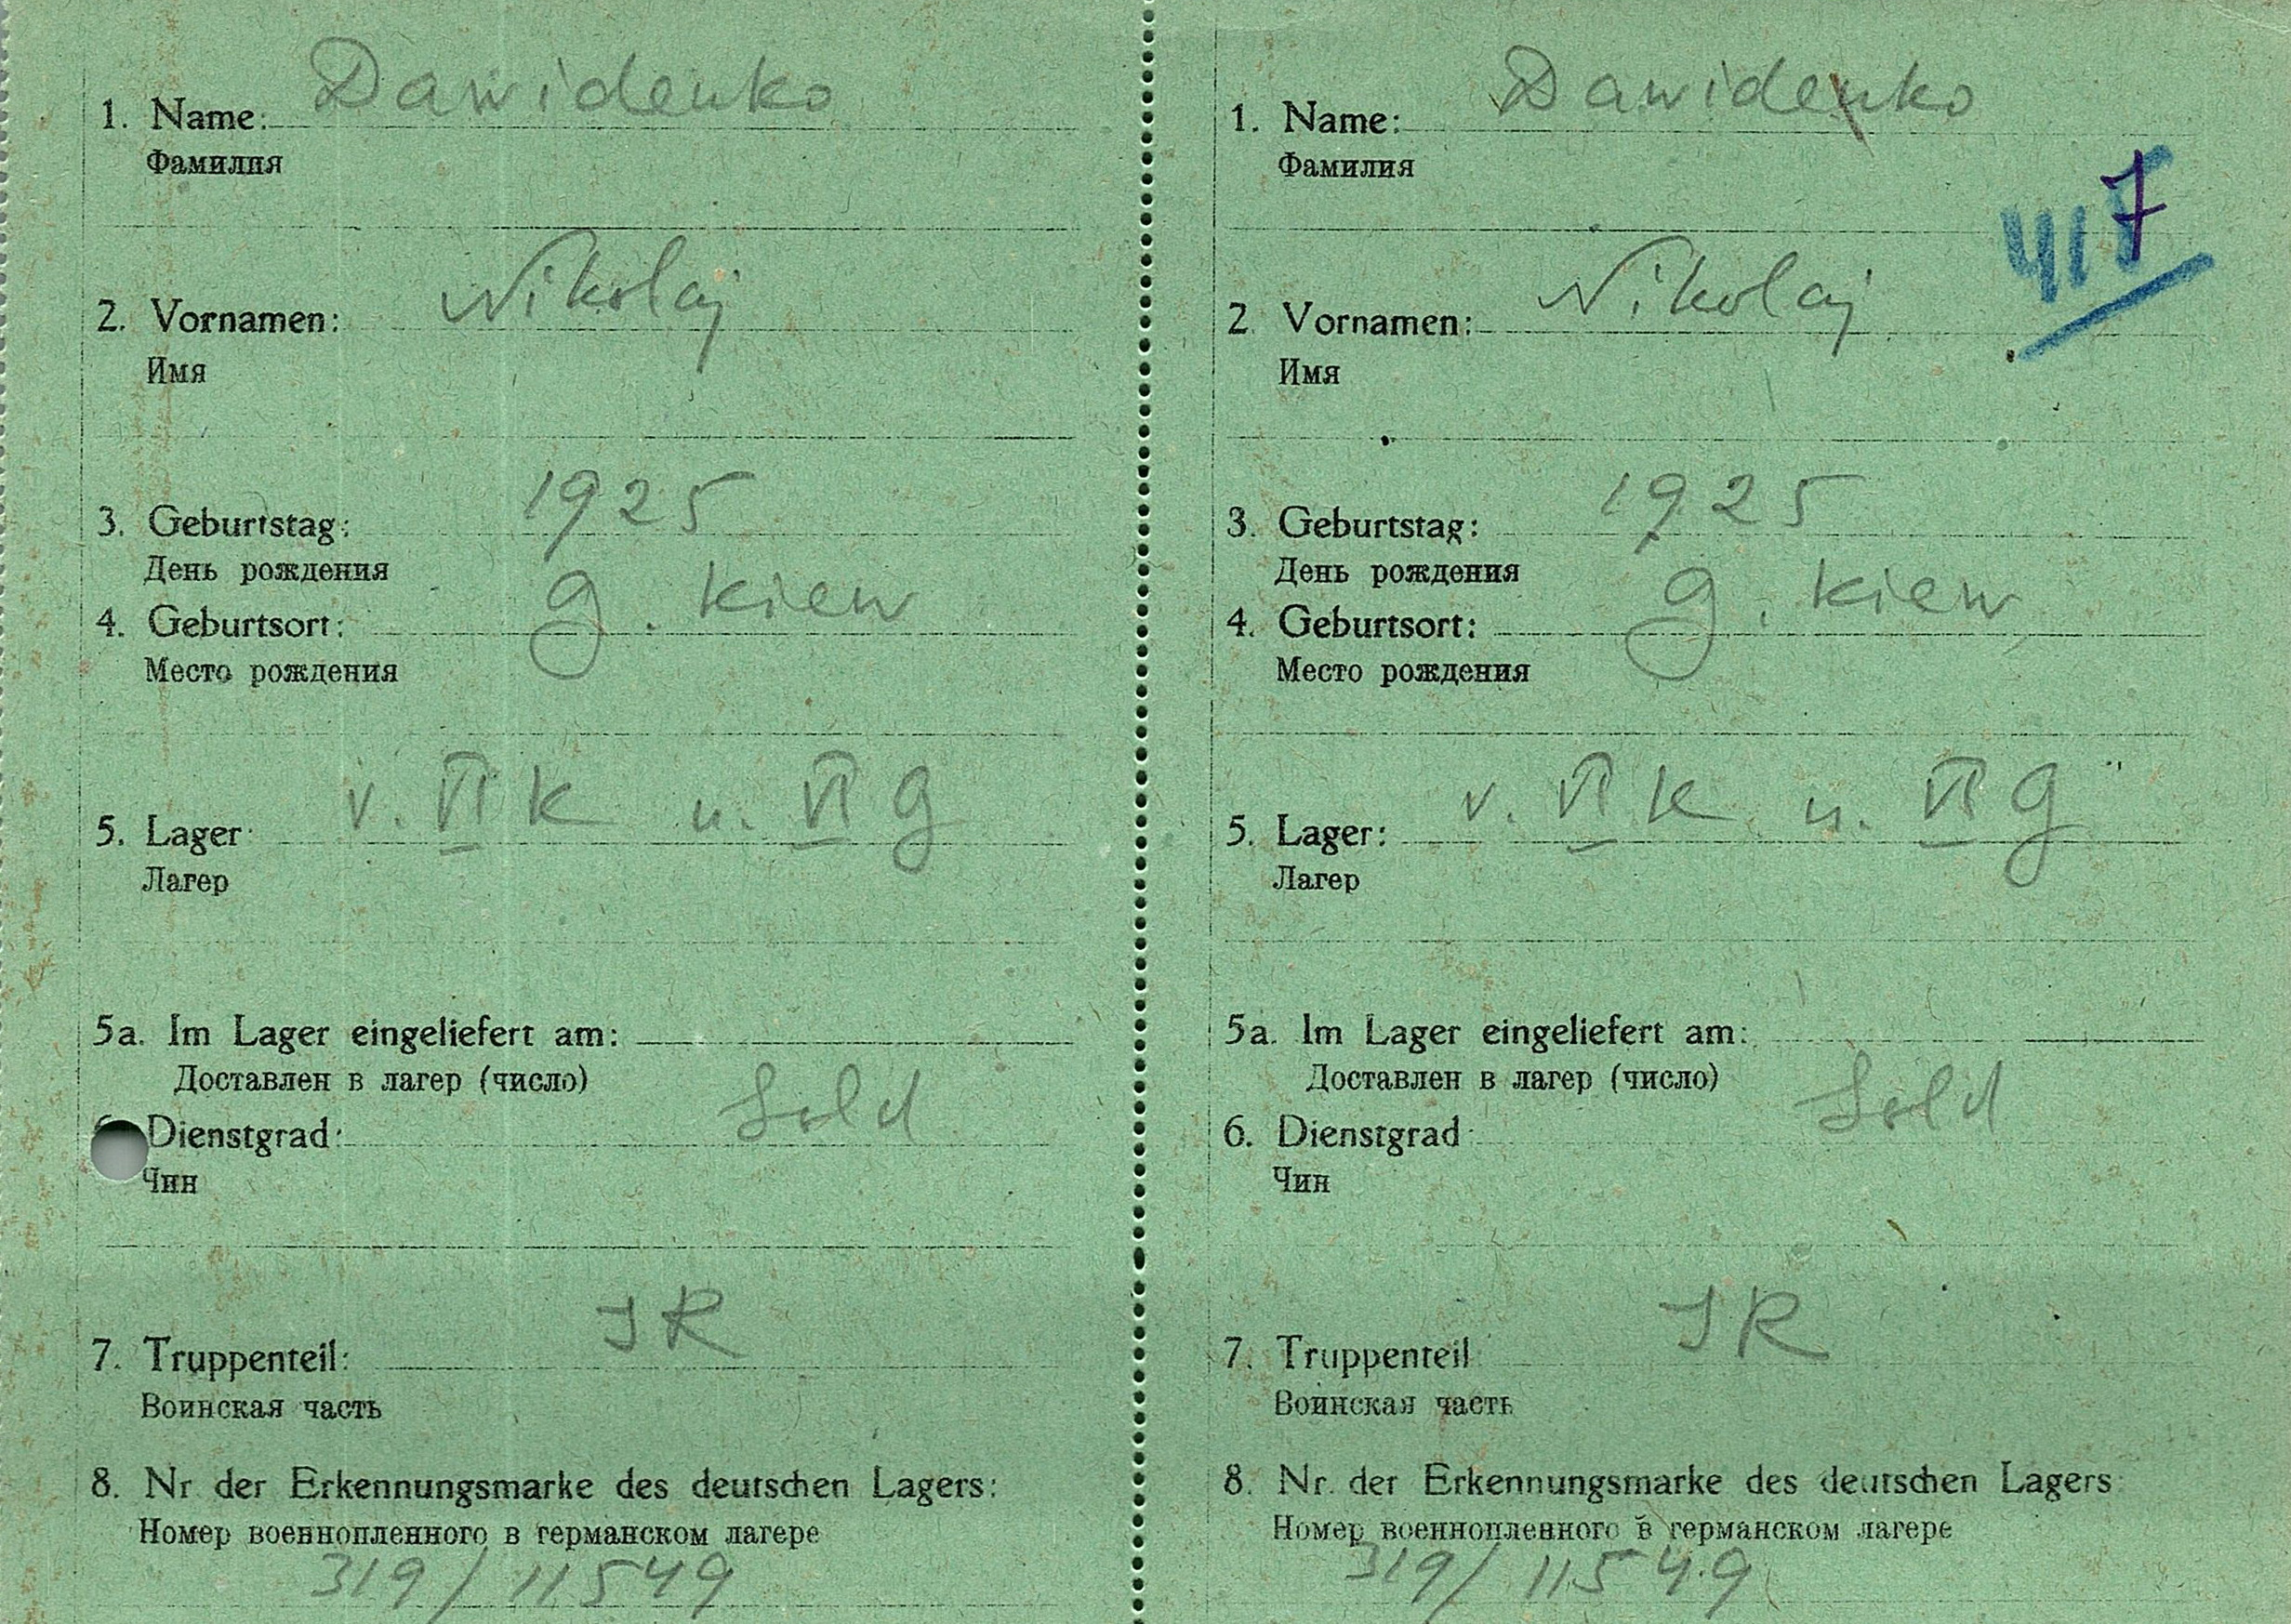 1. Name: Dawidenko
Фамилия
2. Vornamen: Nikolaj
Имя
3. Geburtstag: 1925
День рождения
4. Geburtsort: g. Kiew
Место рождения
5. Lager: v. VI K u. VI G
Лагер
5a. Im Lager eingeliefert am:
Доставлен в лагер (число)
6. Dienstgrad: Sold
Чин
7. Truppenteil: JR
Воинская часть
8. Nr der Erkennungsmarke des deutschen Lagers:
Номер военнопленного в германском лагере
319/11549
1. Name: Dawidenko
Фамилия
417
2. Vornamen: Nikolaj
Имя
3. Geburtstag: 1925
День рождения
4. Geburtsort: g. Kiew
Место рождения
5. Lager: v. VI K u. VI G
Лагер
5a. Im Lager eingeliefert am:
Доставлен в лагер (число)
6. Dienstgrad Sold
Чин
7. Truppenteil JR
Воинская часть
8. Nr. der Erkennungsmarke des deutschen Lagers
Номер военнопленного в германском лагере
319/11549